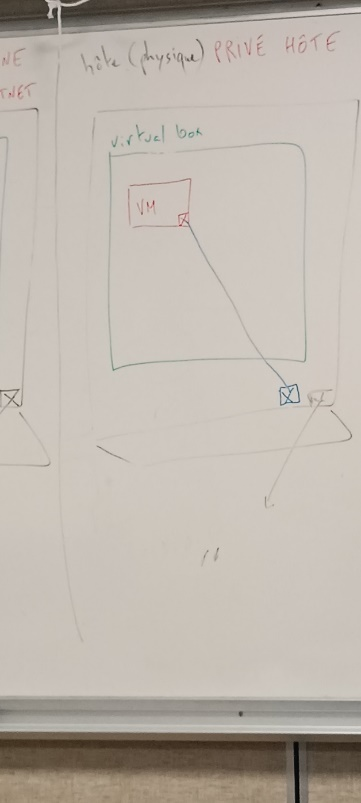 NE
TNET
hôte (physique) PRIVÉ HÔTE
virtual box
VM